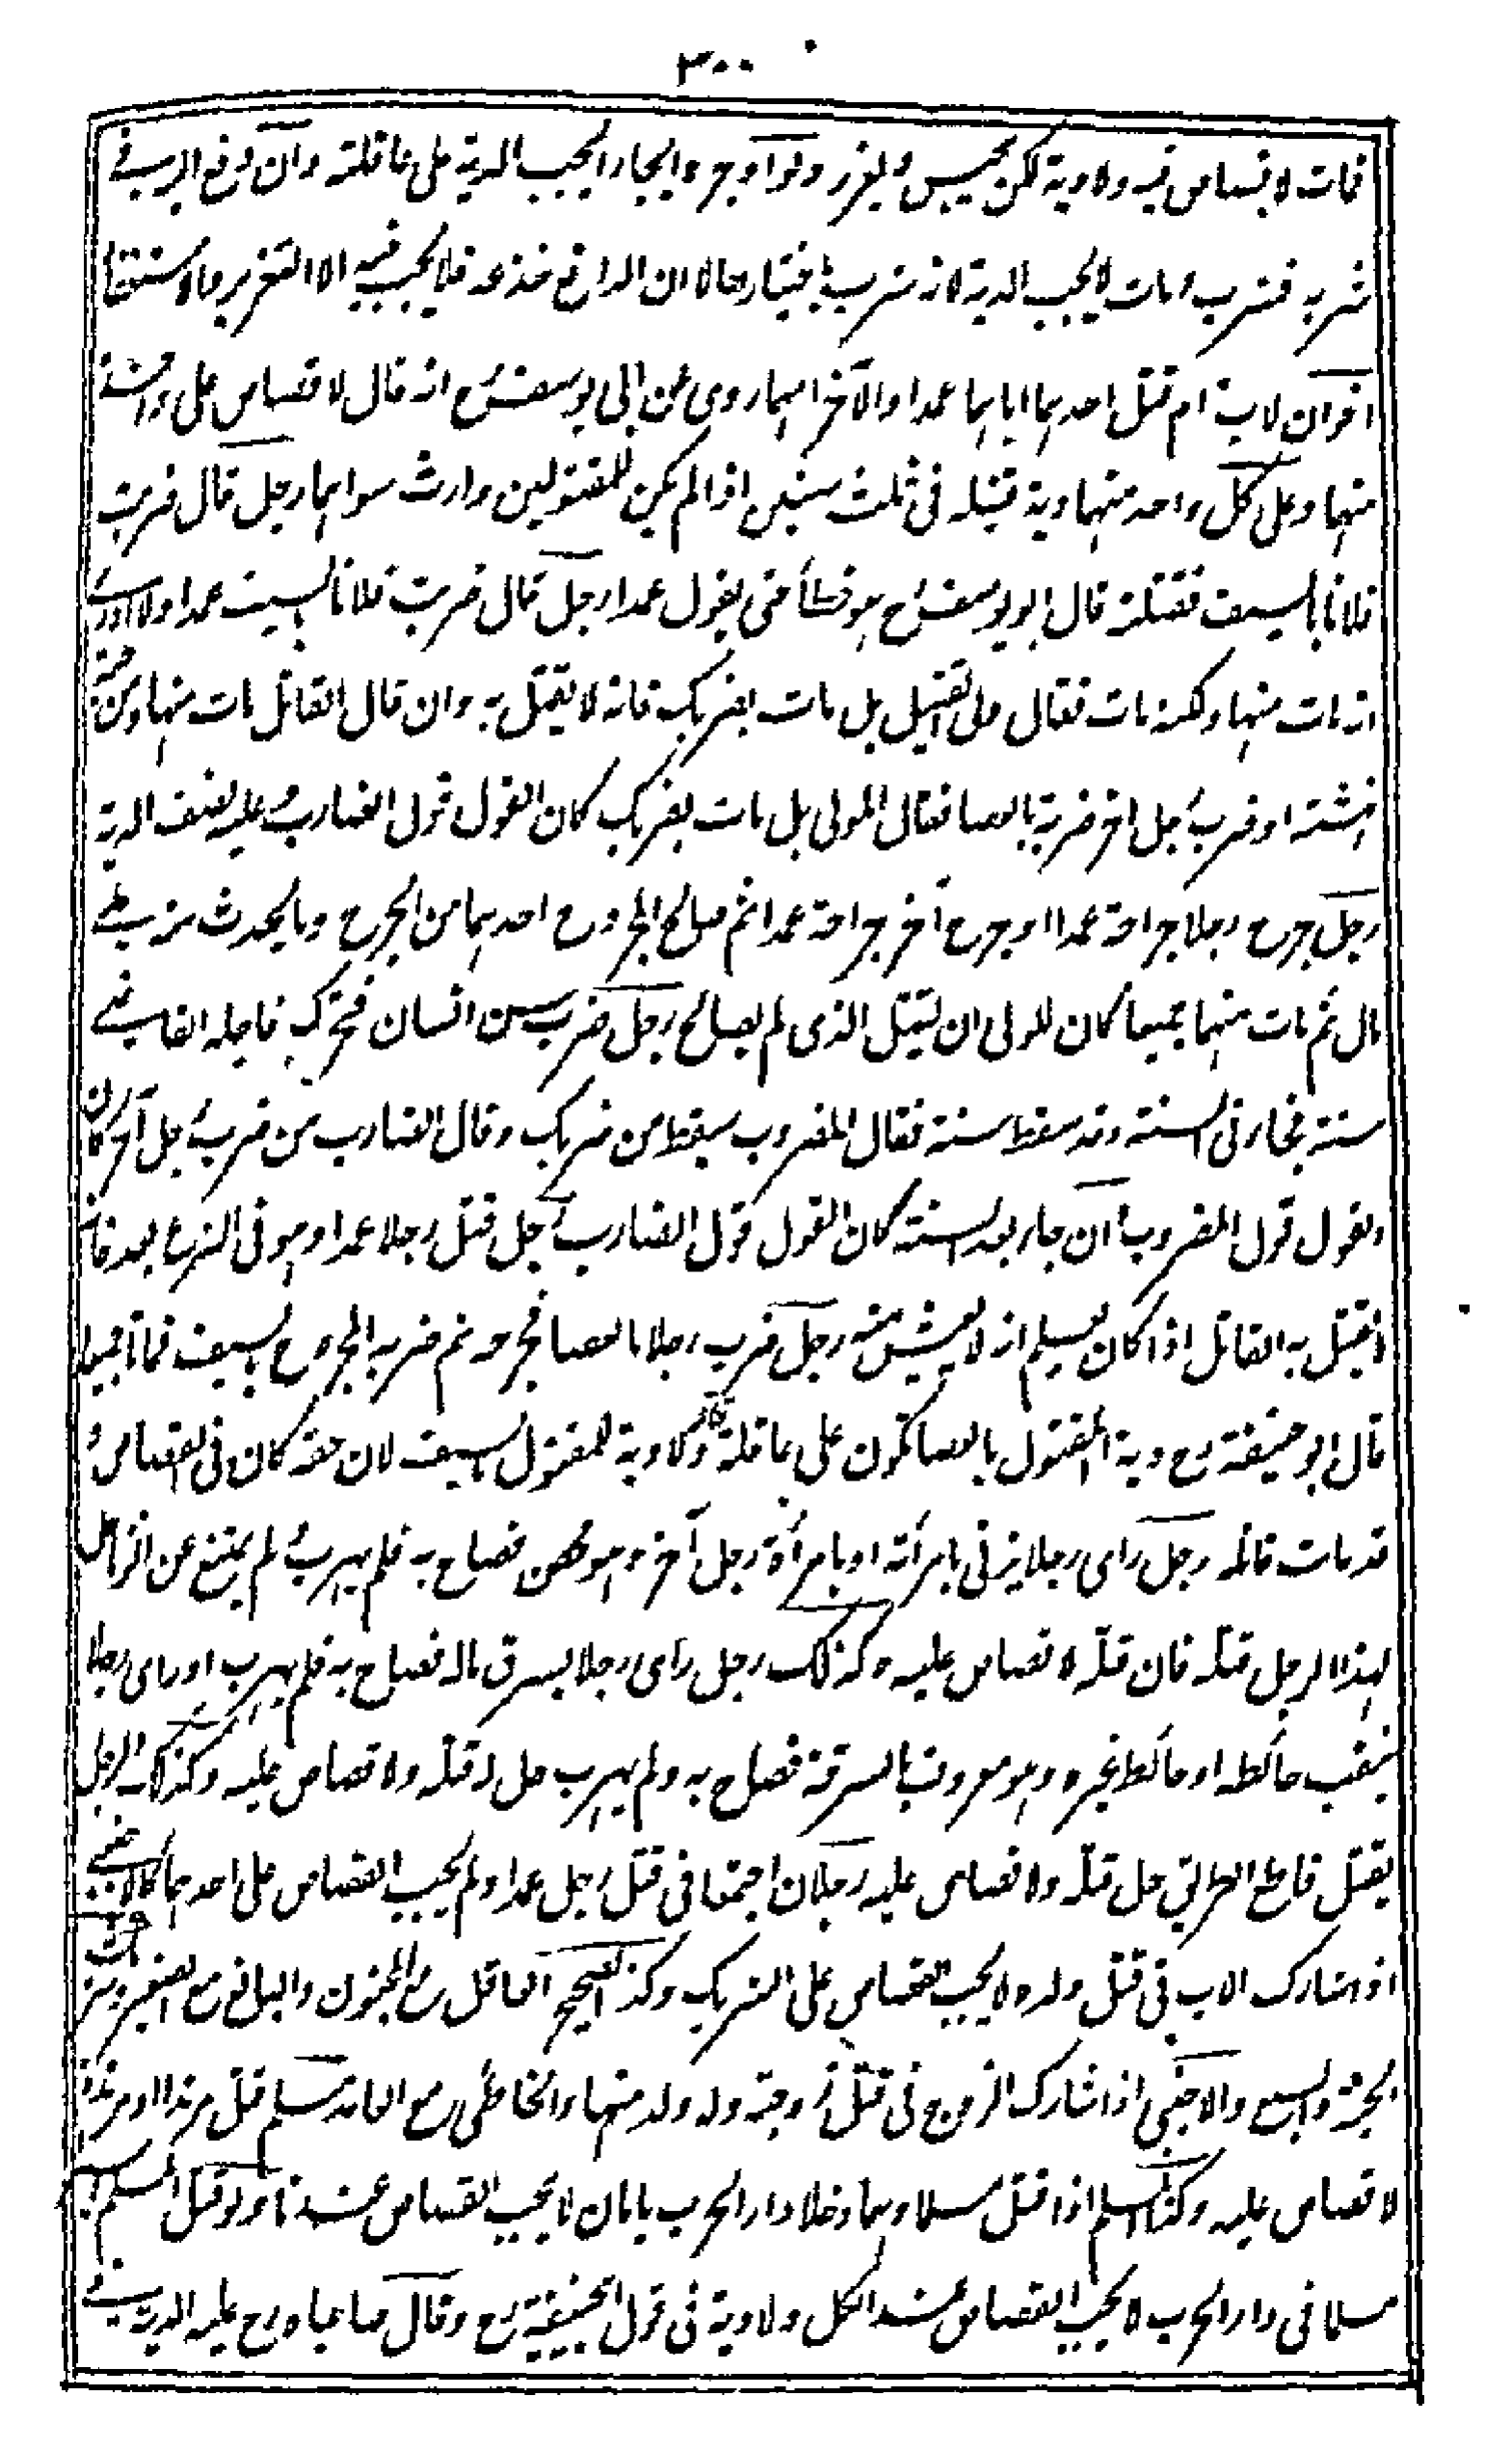 ٣٠٠
فمات لا قصاص فيه ولا دية لكن يحبس ويعزر ولو اوجره ايجارا يجب الدية على عاقلته وان دفع اليه في
شربه فشرب ومات لا يجب الدية لانه شرب باختياره الا ان الدافع خدعه فلا يجب فيه الا التعزير والاستغفار
اخوان لاب وام قتل احدهما اباهما عمدا والآخر امهما روى عن ابى يوسف رح انه قال لا قصاص على واحد
منهما وعلى كل واحد منهما دية قتيله فى ثلث سنين اذا لم يكن للمقتولين وارث سواهما رجل قال ضربت
فلانا بالسيف فقتلته قال ابو يوسف رح هو خطأ حتى يقول عمدا رجل قال ضربت فلانا بالسيف عمدا ولا ادرى
انه مات منها ولكنه مات فقال ولى القتيل بل مات بضربك فانه لا يقتل به وان قال القاتل مات منها ومن حية
نهشته او ضرب رجل اخر ضربه بالعصا فقال الولى بل مات بضربك كان القول قول الضارب وعليه نصف الدية
رجل جرح رجلا جراحة عمدا وجرح آخر جراحة عمدا ثم صالح المجروح احدهما من الجرح وما يحدث منه على
مال ثم مات منهما جميعا كان للولى ان يقتل الذى لم يصالح رجل ضرب سن انسان فتحرك فاجله القاضى
سنة فجاء فى السنة وقد سقط سنه فقال المضروب سقط من ضربك وقال الضارب من ضرب رجل آخر كان
القول قول المضروب وان جاء بعد السنة كان القول قول الضارب رجل قتل رجلا عمدا وهو فى النزع بعد فانه
يقتل به القاتل اذا كان يعلم انه لا يعيش منه رجل ضرب رجلا بالعصا فجرحه ثم ضربه المجروح بالسيف فماتا جميعا
قال ابو حنيفة رح دية المقتول بالعصا تكون على عاقلة قاتله ولا دية للمقتول بالسيف لان حقه كان فى القصاص و
قد مات قاتله رجل رأى رجلا يزنى بامرأته او بامرأة رجل آخر وهو محصن فصاح به فلم يهرب ولم يمتنع عن الزنا حل
لهذا الرجل قتله فان قتله لا قصاص عليه وكذلك رجل رأى رجلا يسرق ماله فصاح به فلم يهرب او رأى رجلا
ينقب حائطه او حائط غيره وهو معروف بالسرقة فصاح به ولم يهرب حل له قتله ولا قصاص عليه وكذلك الرجل
يقتل قاطع الطريق حل قتله ولا قصاص عليه رجلان اجتمعا فى قتل رجل عمدا ولم يجب القصاص على احدهما كالاجنبى
اذا شارك الاب فى قتل ولده لا يجب القصاص على الشريك وكذا الصحيح العاقل مع المجنون والبالغ مع الصغير وشريك
الحية والسبع والاجنبى اذا شارك الزوج فى قتل زوجته وله ولد منها والخاطى مع العامد مسلم قتل مرتدا او مرتدة
لا قصاص عليه وكذا المسلم اذا قتل مسلما وهما دخلا دار الحرب بامان لا يجب القصاص عندنا ولو قتل المسلم
مسلما فى دار الحرب لا يجب القصاص عند الكل ولا دية فى قول ابى حنيفة رح وقال صاحباه رح عليه الدية فى